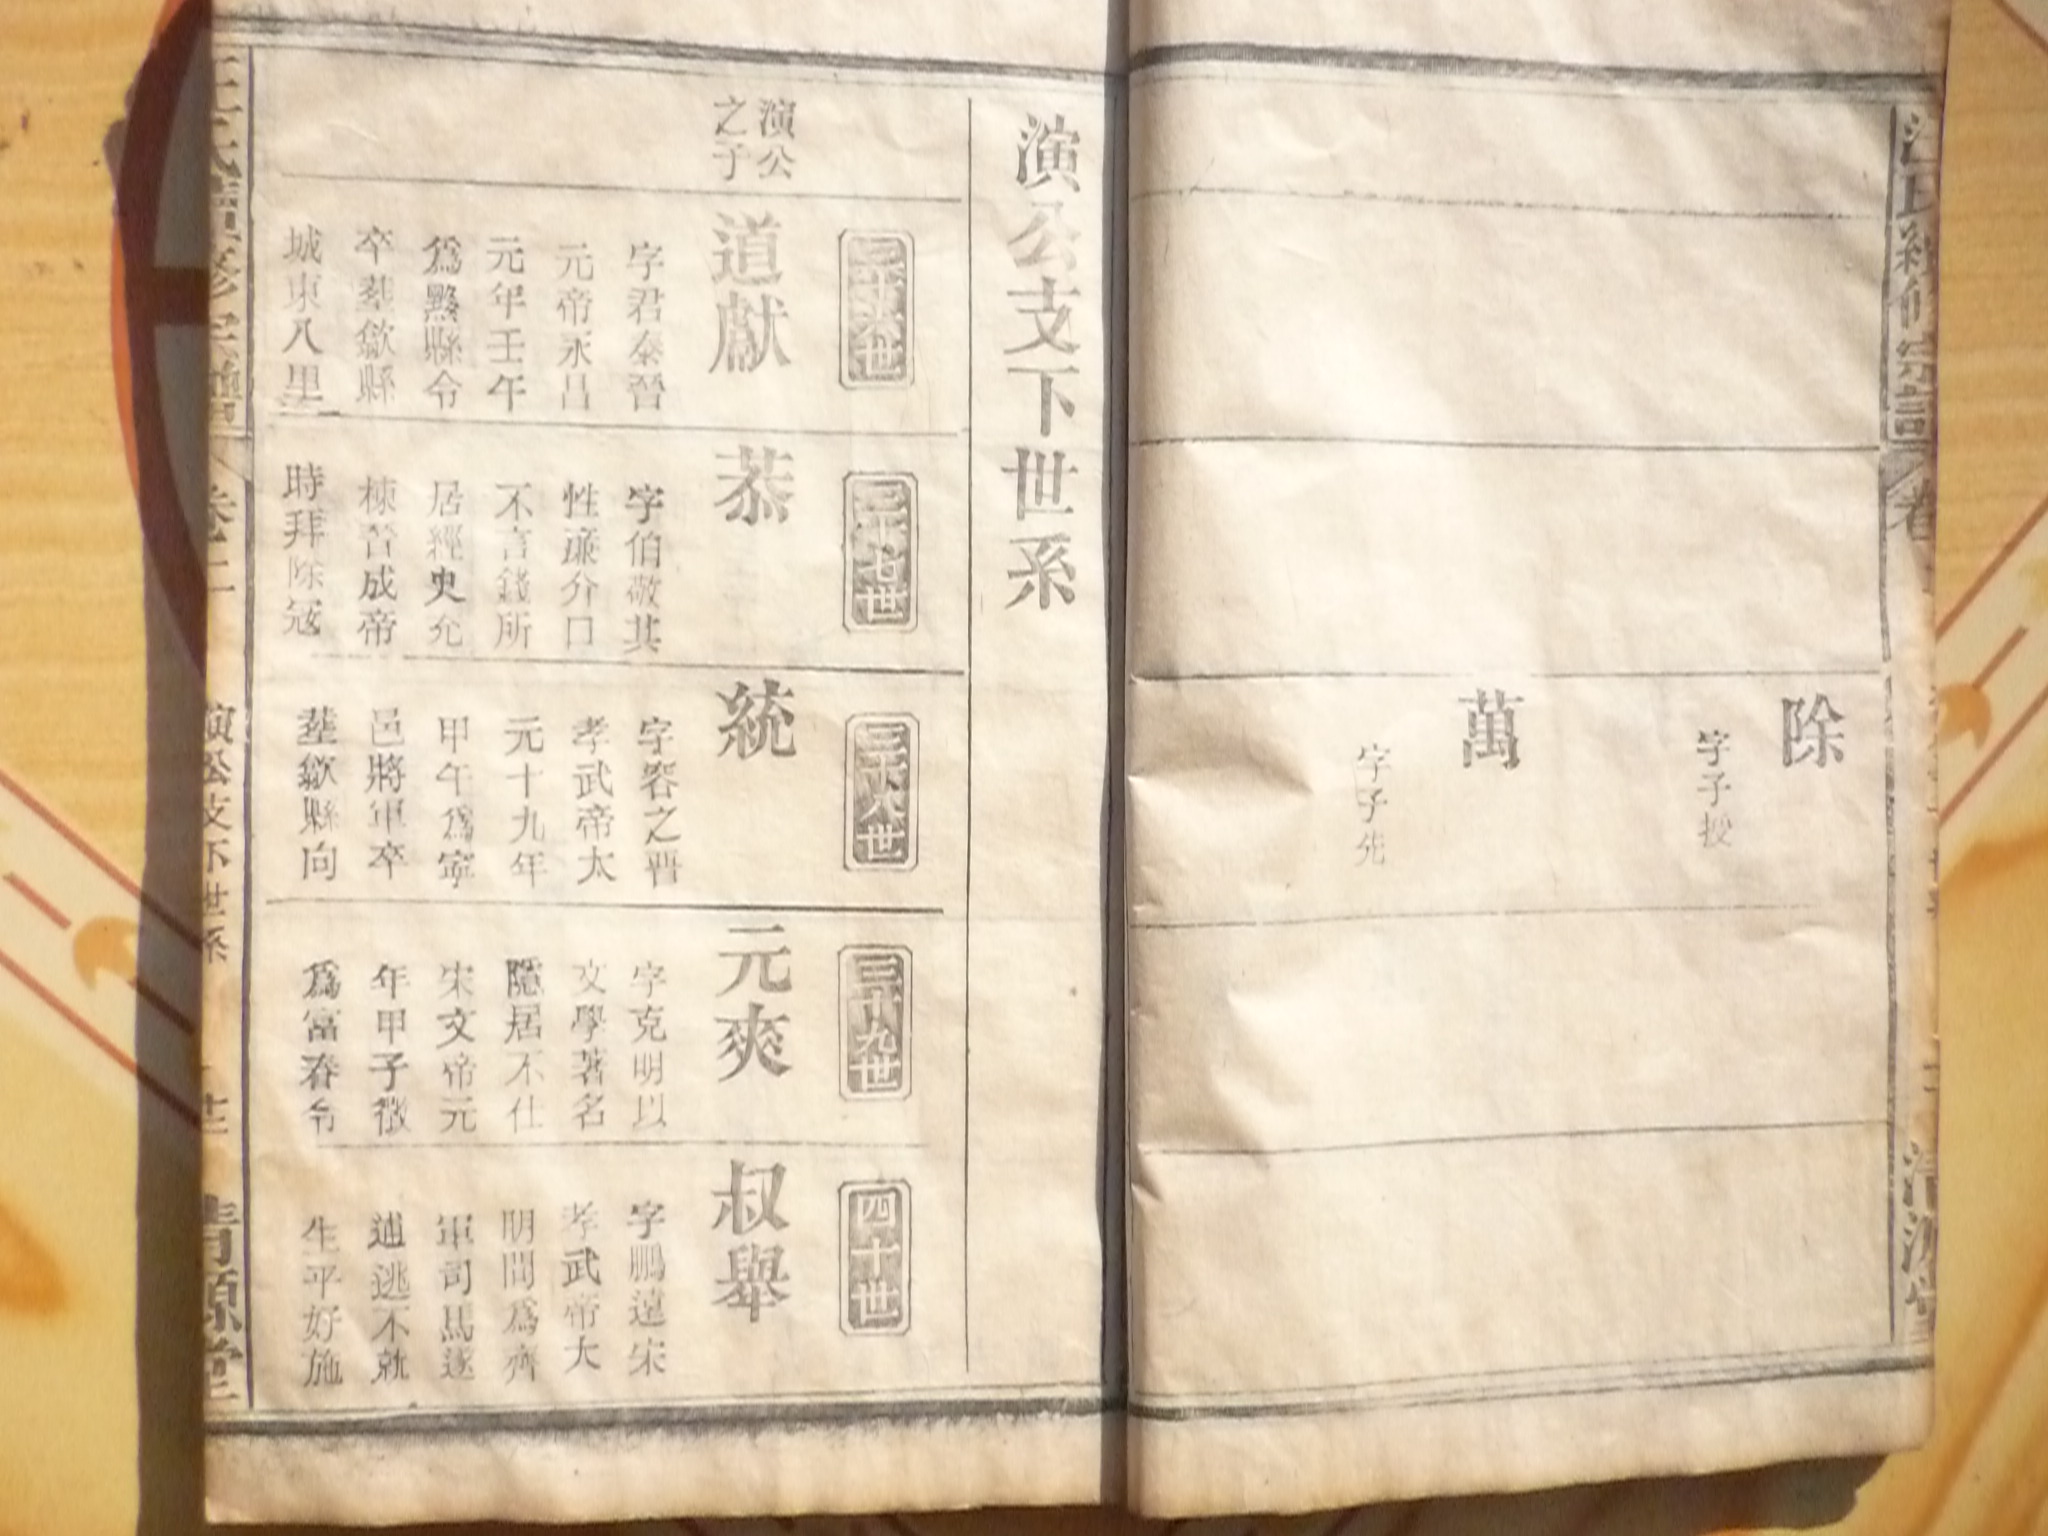 除
字子授
萬
字子先
演公支下世系
演公
之子
三十六世
道獻
字君泰晉
元帝永昌
元年壬午
爲黟縣令
卒葬歙縣
城東八里
三十七世
恭
字伯敬其
性廉介口
不言錢所
居經史充
棟晉成帝
時拜除寇
三十八世
統
字容之晋
孝武帝太
元十九年
甲午爲寧
邑將軍卒
葬歙縣向
三十九世
元爽
字克明以
文學著名
隱居不仕
宋文帝元
年甲子徵
爲富春令
四十世
叔舉
字鵬遠宋
孝武帝大
明間爲齊
軍司馬遂
逋逃不就
生平好施
演公支下世系
清源堂